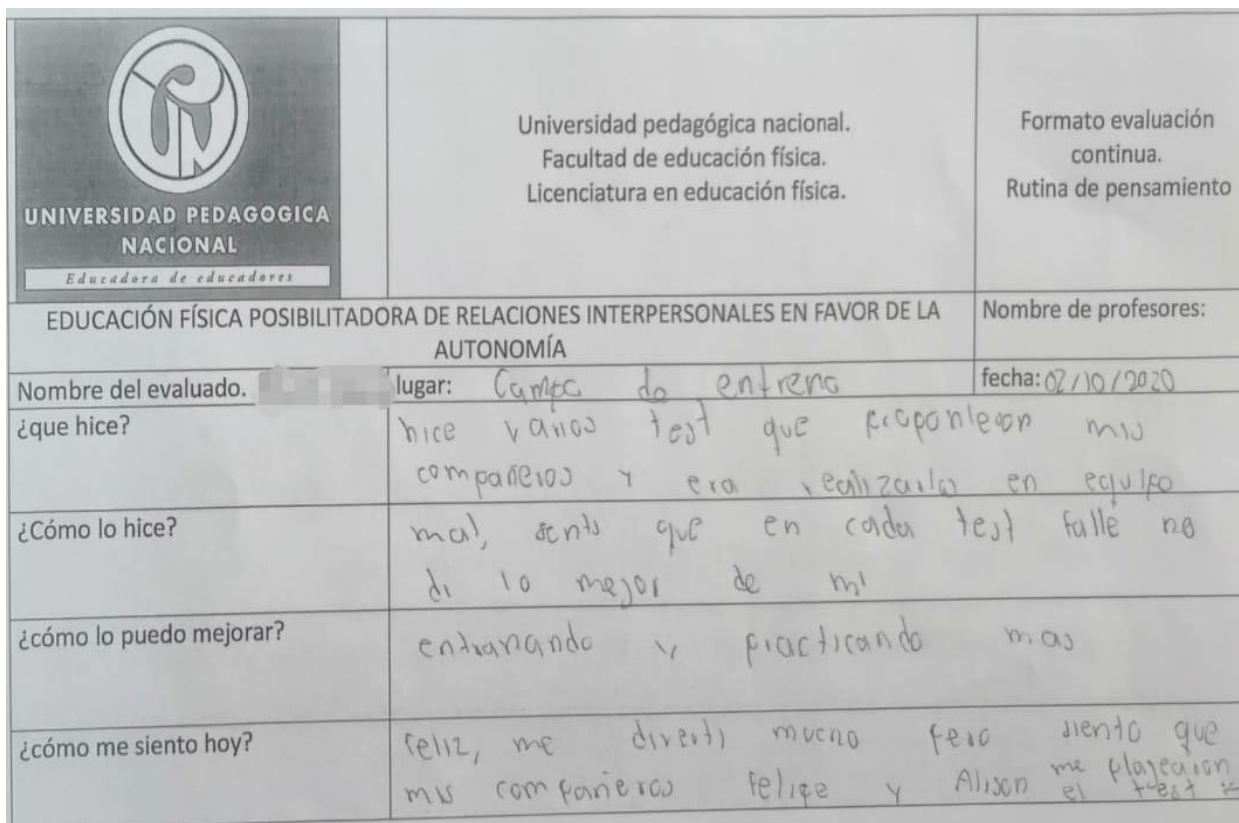 UNIVERSIDAD PEDAGOGICA
NACIONAL
Educadora de educadores
Universidad pedagógica nacional.
Facultad de educación física.
Licenciatura en educación física.
Formato evaluación
continua.
Rutina de pensamiento
EDUCACIÓN FÍSICA POSIBILITADORA DE RELACIONES INTERPERSONALES EN FAVOR DE LA
AUTONOMÍA
Nombre de profesores:
Nombre del evaluado.
lugar: Campo de entreno
fecha: 02/10/2020
¿que hice?
hice varios test que proponieron mis
compañeros y era realizarlos en equipo
¿Cómo lo hice?
mal, sento que en cada test fallé no
di lo mejor de mi
¿cómo lo puedo mejorar?
entranando y practicando mas
¿cómo me siento hoy?
feliz, me diverti mucho pero siento que
mis compañeros felipe y Alison me plagearon
el test